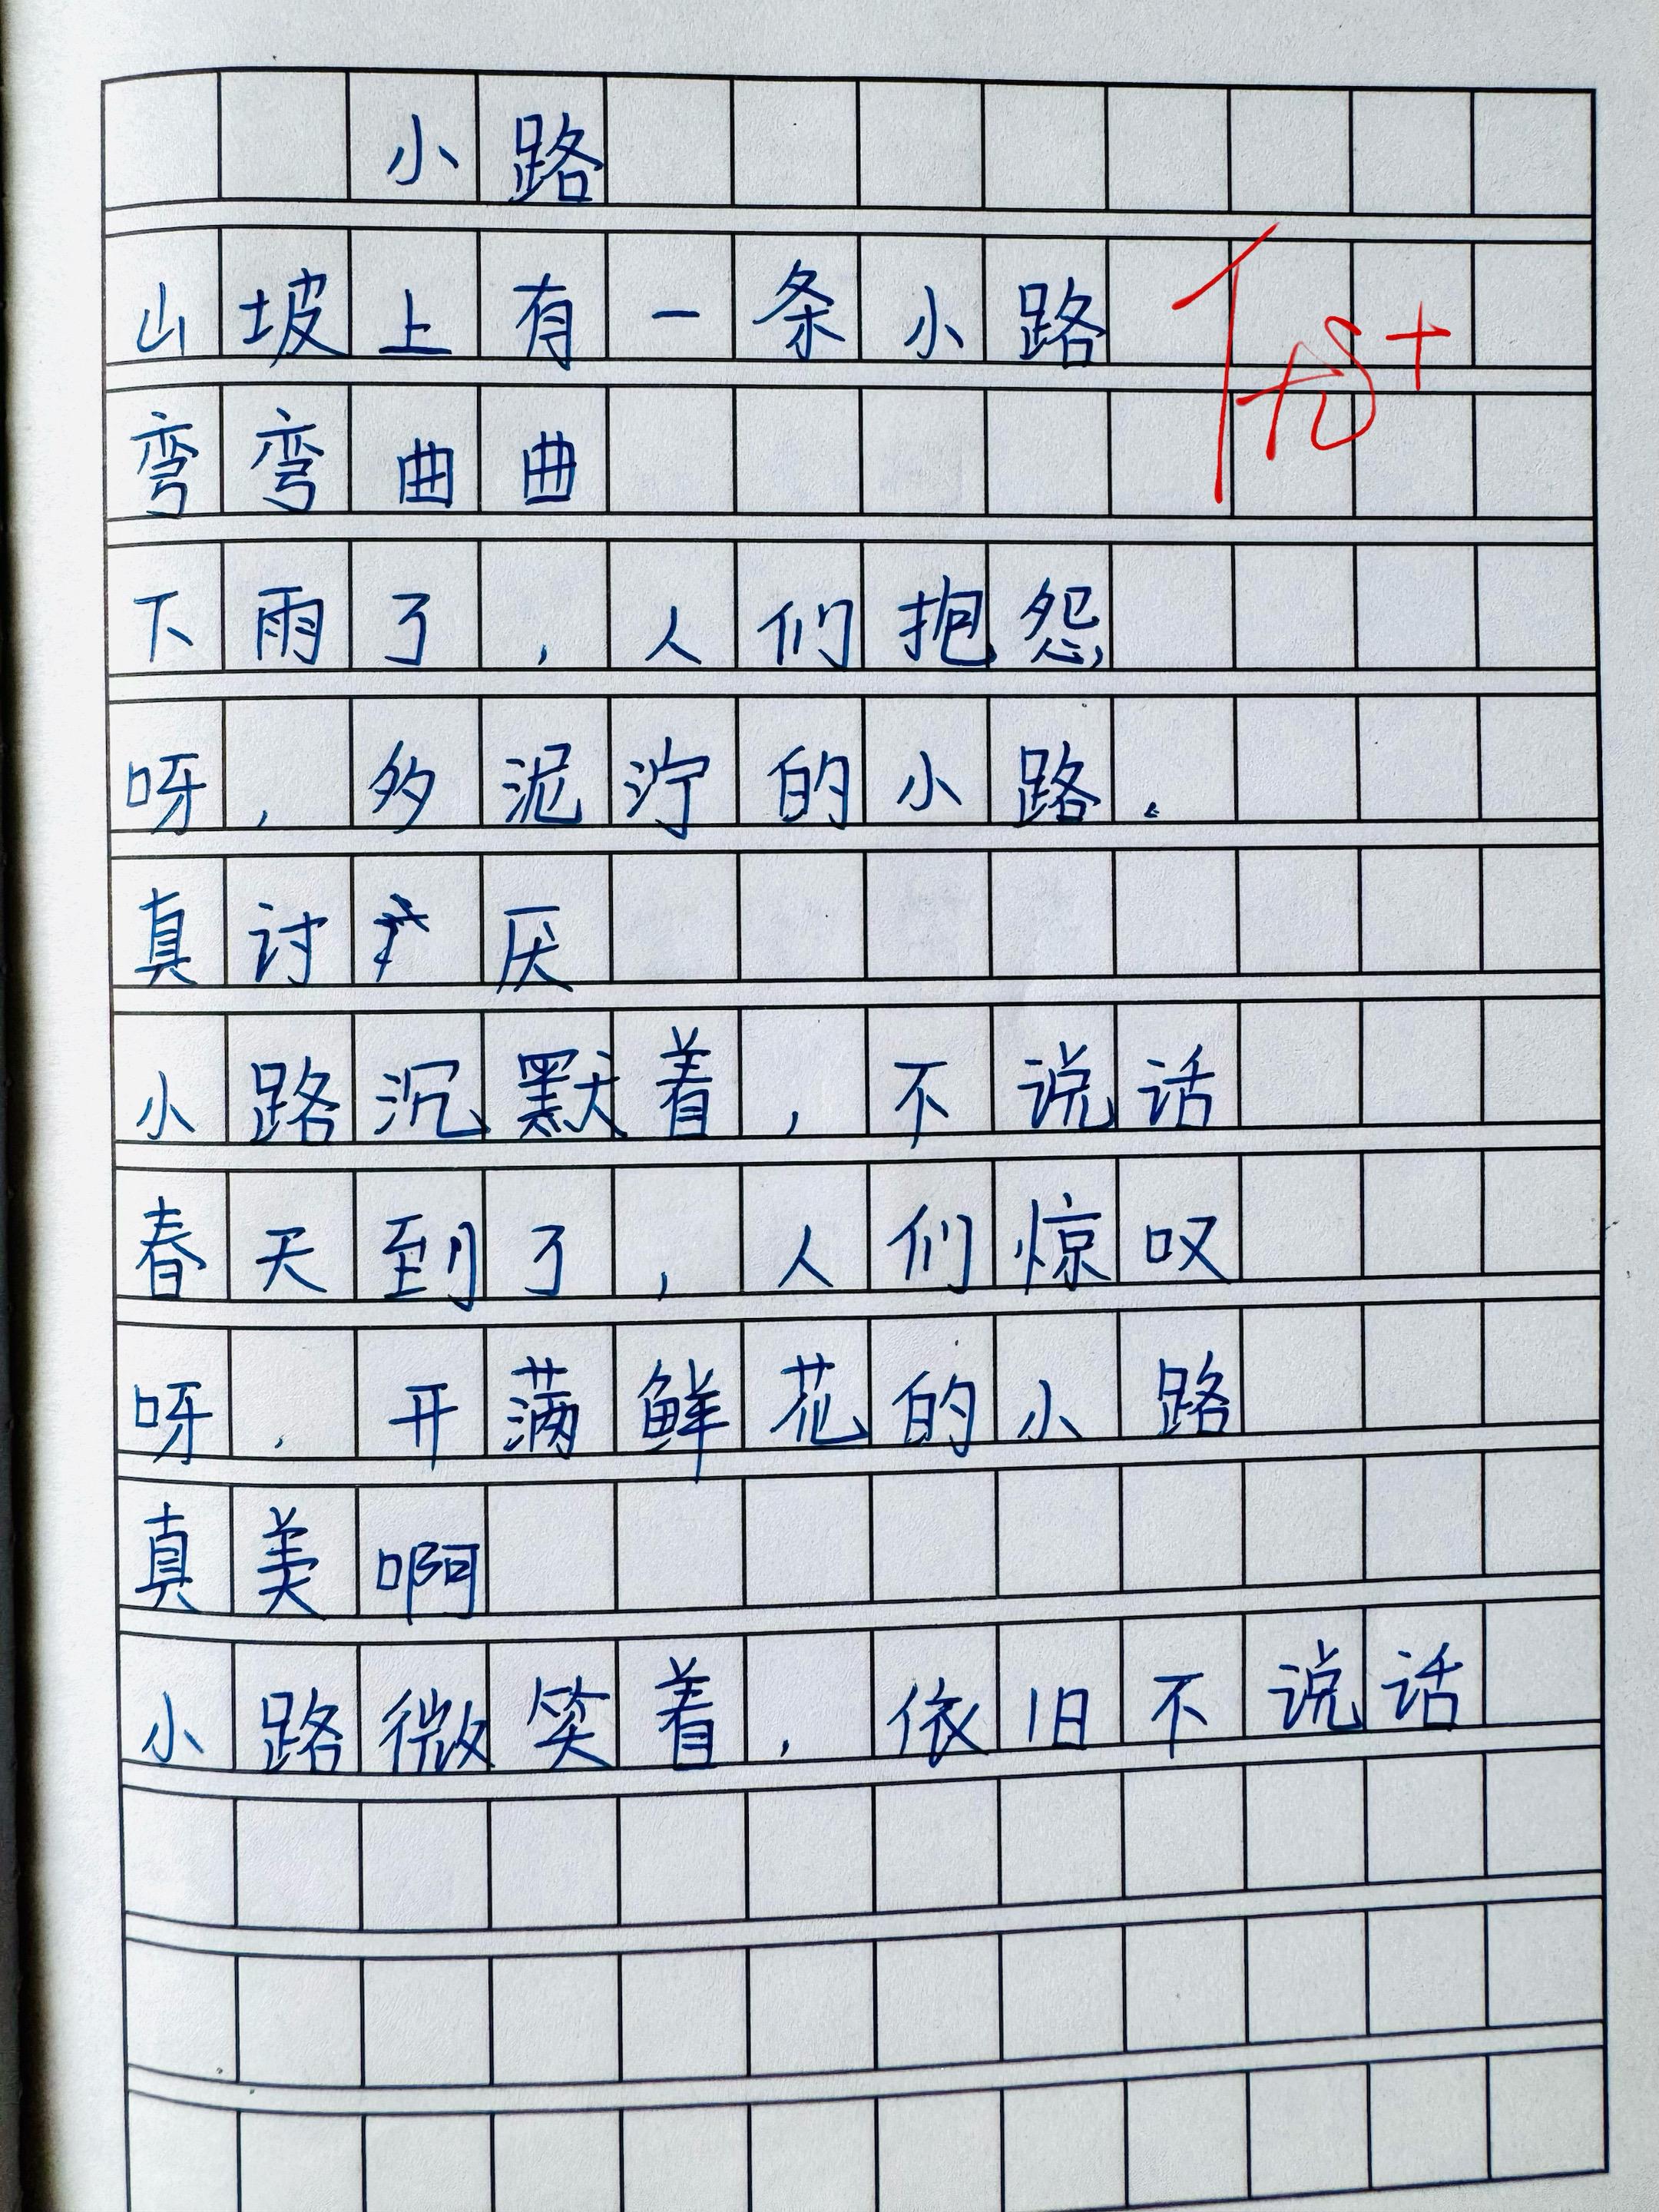 小路
山坡上有一条小路
弯弯曲曲
下雨了，人们抱怨，
呀，多泥泞的小路。
真讨厌
小路沉默着，不说话
春天到了，人们惊叹
呀，开满鲜花的小路
真美啊
小路微笑着，依旧不说话